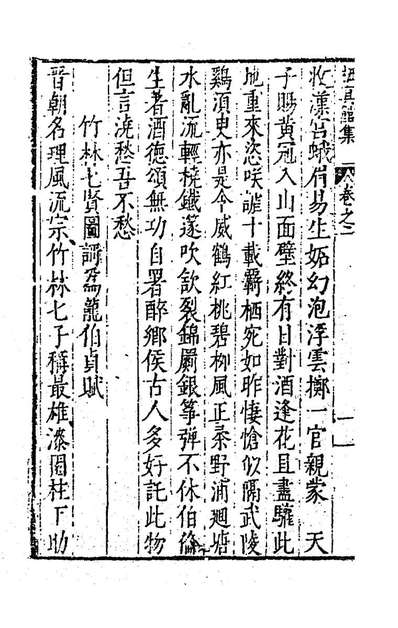 集
卷之二
收漢宮蛾眉易生妬幻泡浮雲擲一官親蒙　天
子賜黃冠入山面壁終有日對酒逢花且盡驩此
地重來恣咲謔十載羇栖宛如昨悽愴似隔武陵
鷄須史亦是令威鶴紅桃碧柳風正柔野浦迴塘
水亂流輕橈鐵篴吹欲裂錦罽銀箏弹不休伯倫
生著酒德頌無功自署醉鄉侯古人多好託此物
但言澆愁吾不愁
竹林七賢圖歌為龍伯貞賦
晉朝名理風流宗竹林七子稱最雄漆園柱下助